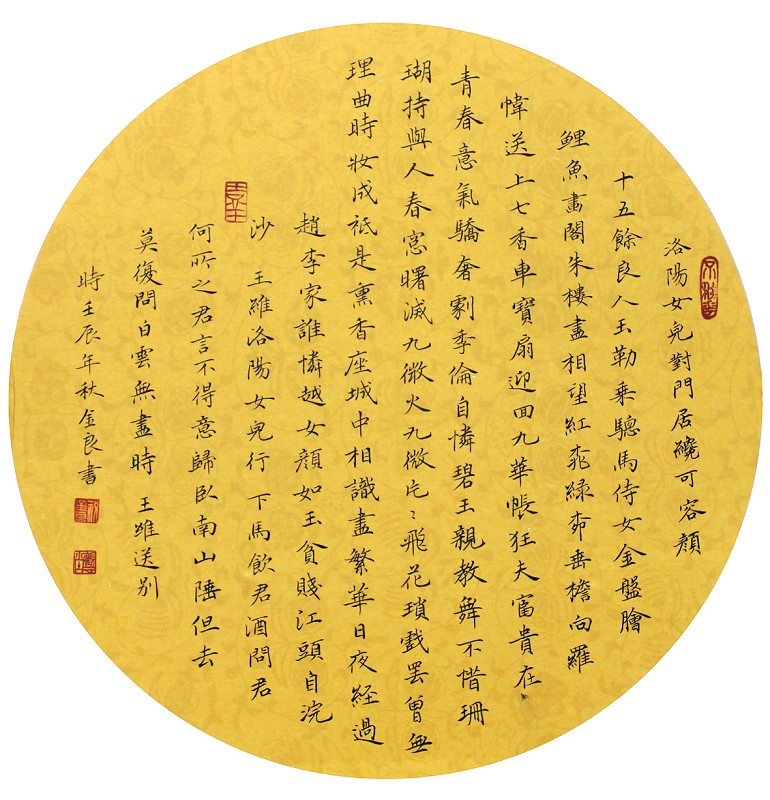 洛陽女兒對門居纔可容顏
十五餘良人玉勒乘驄馬侍女金盤膾
鯉魚畫閣朱樓盡相望紅桃綠柳垂檐向羅
幃送上七香車寶扇迎回九華帳狂夫富貴在
青春意氣驕奢劇季倫自憐碧玉親教舞不惜珊
瑚持與人春窓曙滅九微火九微片〻飛花瑣戲罷曾無
理曲時妝成祗是熏香座城中相識盡繁華日夜經過
趙李家誰憐越女顏如玉貧賤江頭自浣
沙 王維洛陽女兒行 下馬飲君酒問君
何所之君言不得意歸臥南山陲但去
莫復問白雲無盡時 王維送別
時壬辰年秋金良書